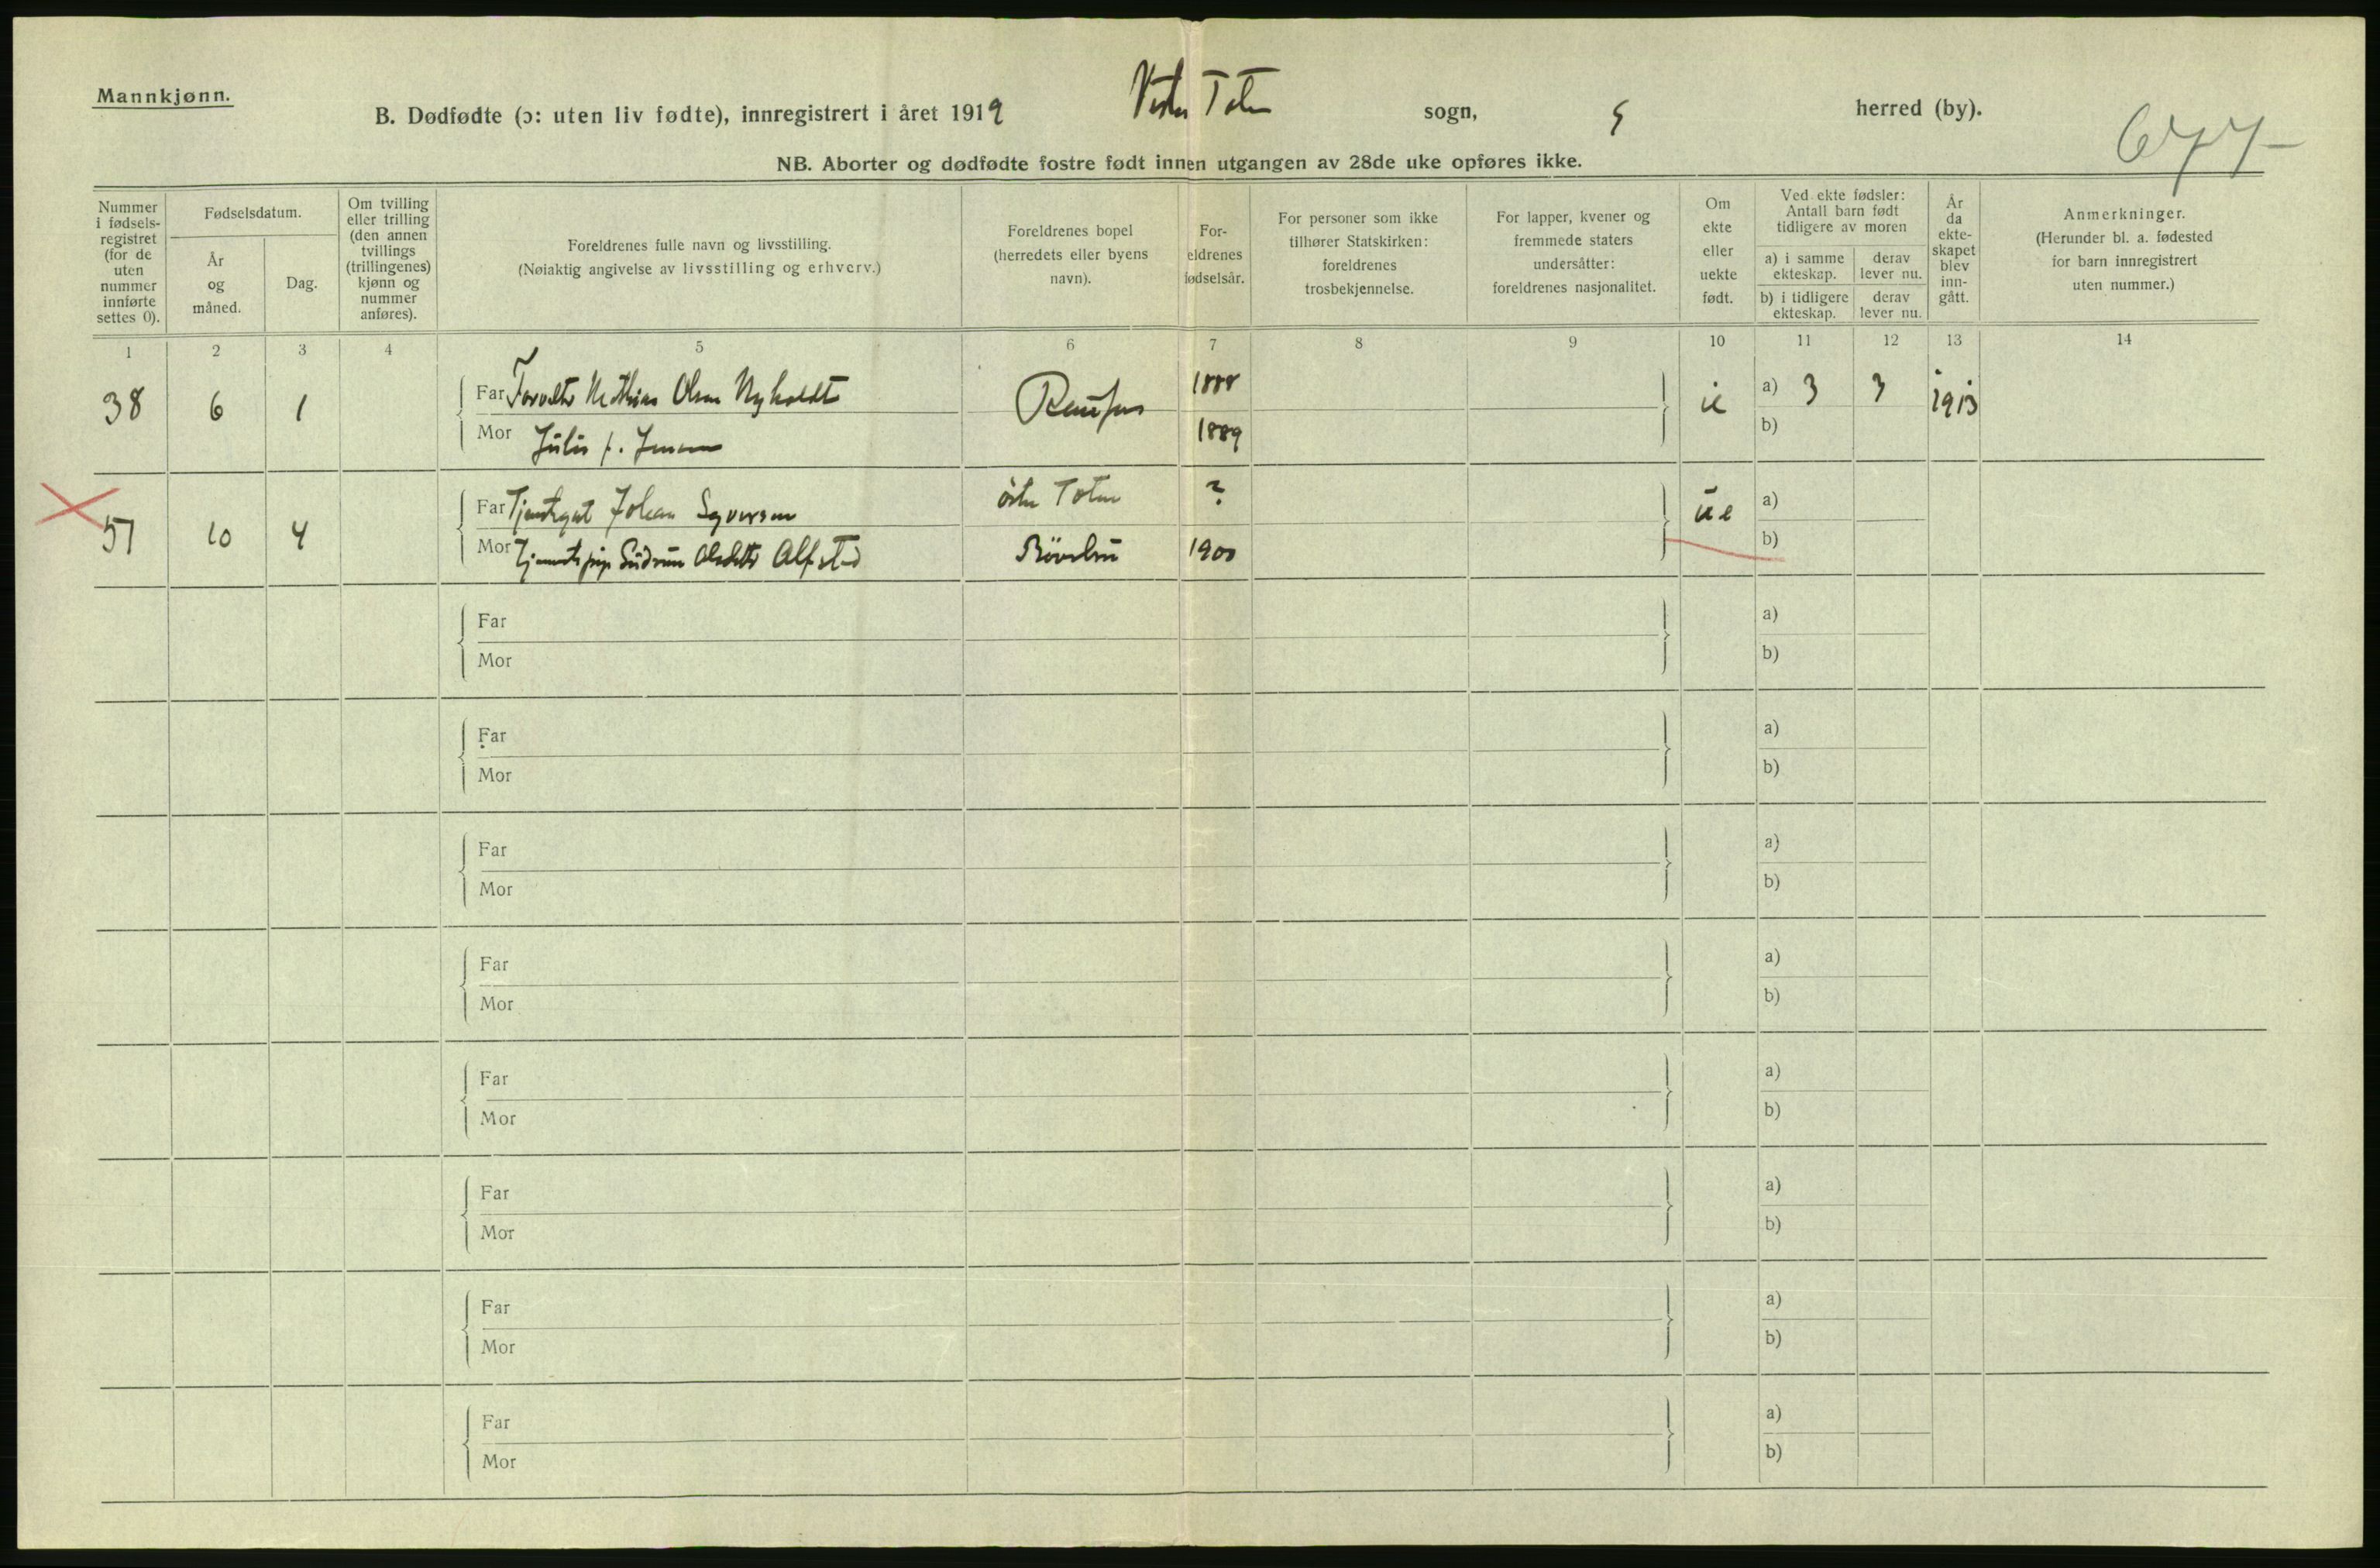 Mannkjønn.
B. Dødfødte (ɔ: uten liv fødte), innregistrert i året 1919 Vestre Toten sogn, herred (by).
677
NB. Aborter og dødfødte fostre født innen utgangen av 28de uke opføres ikke.
Nummer
i fødsels-
registret
(for de
uten
nummer
innførte
settes 0).
Fødselsdatum.
År
og
måned.
Dag.
Om tvilling
eller trilling
(den annen
tvillings
(trillingenes)
kjønn og
nummer
anføres).
Foreldrenes fulle navn og livsstilling.
(Nøiaktig angivelse av livsstilling og erhverv.)
Foreldrenes bopel
(herredets eller byens
navn).
For-
eldrenes
fødselsår.
For personer som ikke
tilhører Statskirken:
foreldrenes
trosbekjennelse.
For lapper, kvener og
fremmede staters
undersåtter:
foreldrenes nasjonalitet.
Om
ekte
eller
uekte
født.
Ved ekte fødsler:
Antall barn født
tidligere av moren
a) i samme
ekteskap.
derav
lever nu.
b) i tidligere
ekteskap.
derav
lever nu.
År
da
ekte-
skapet
blev
inn-
gått.
Anmerkninger.
(Herunder bl. a. fødested
for barn innregistrert
uten nummer.)
1 2 3 4 5 6 7 8 9 10 11 12 13 14
38 6 1 Far Mathias Olsen Nyholdt 1888 a) 3 3 1913
Mor Julie f. Jensen 1889 b)
51 10 4 Far Tjenestegut Johan Syversen østre Toten ? ue a)
Mor Gudrun Olsdatter Alfstad Bøverbru 1900 b)
Far a)
Mor b)
Far a)
Mor b)
Far a)
Mor b)
Far a)
Mor b)
Far a)
Mor b)
Far a)
Mor b)
Far a)
Mor b)
Far a)
Mor b)